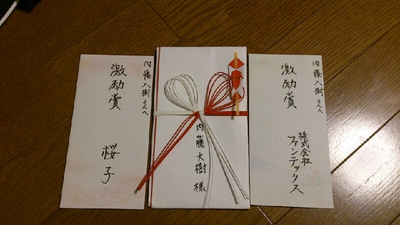 内藤大樹さんへ
激励賞
株式会社
ファンテックス
内藤大樹様
内藤大樹さんへ
激励賞
桜子